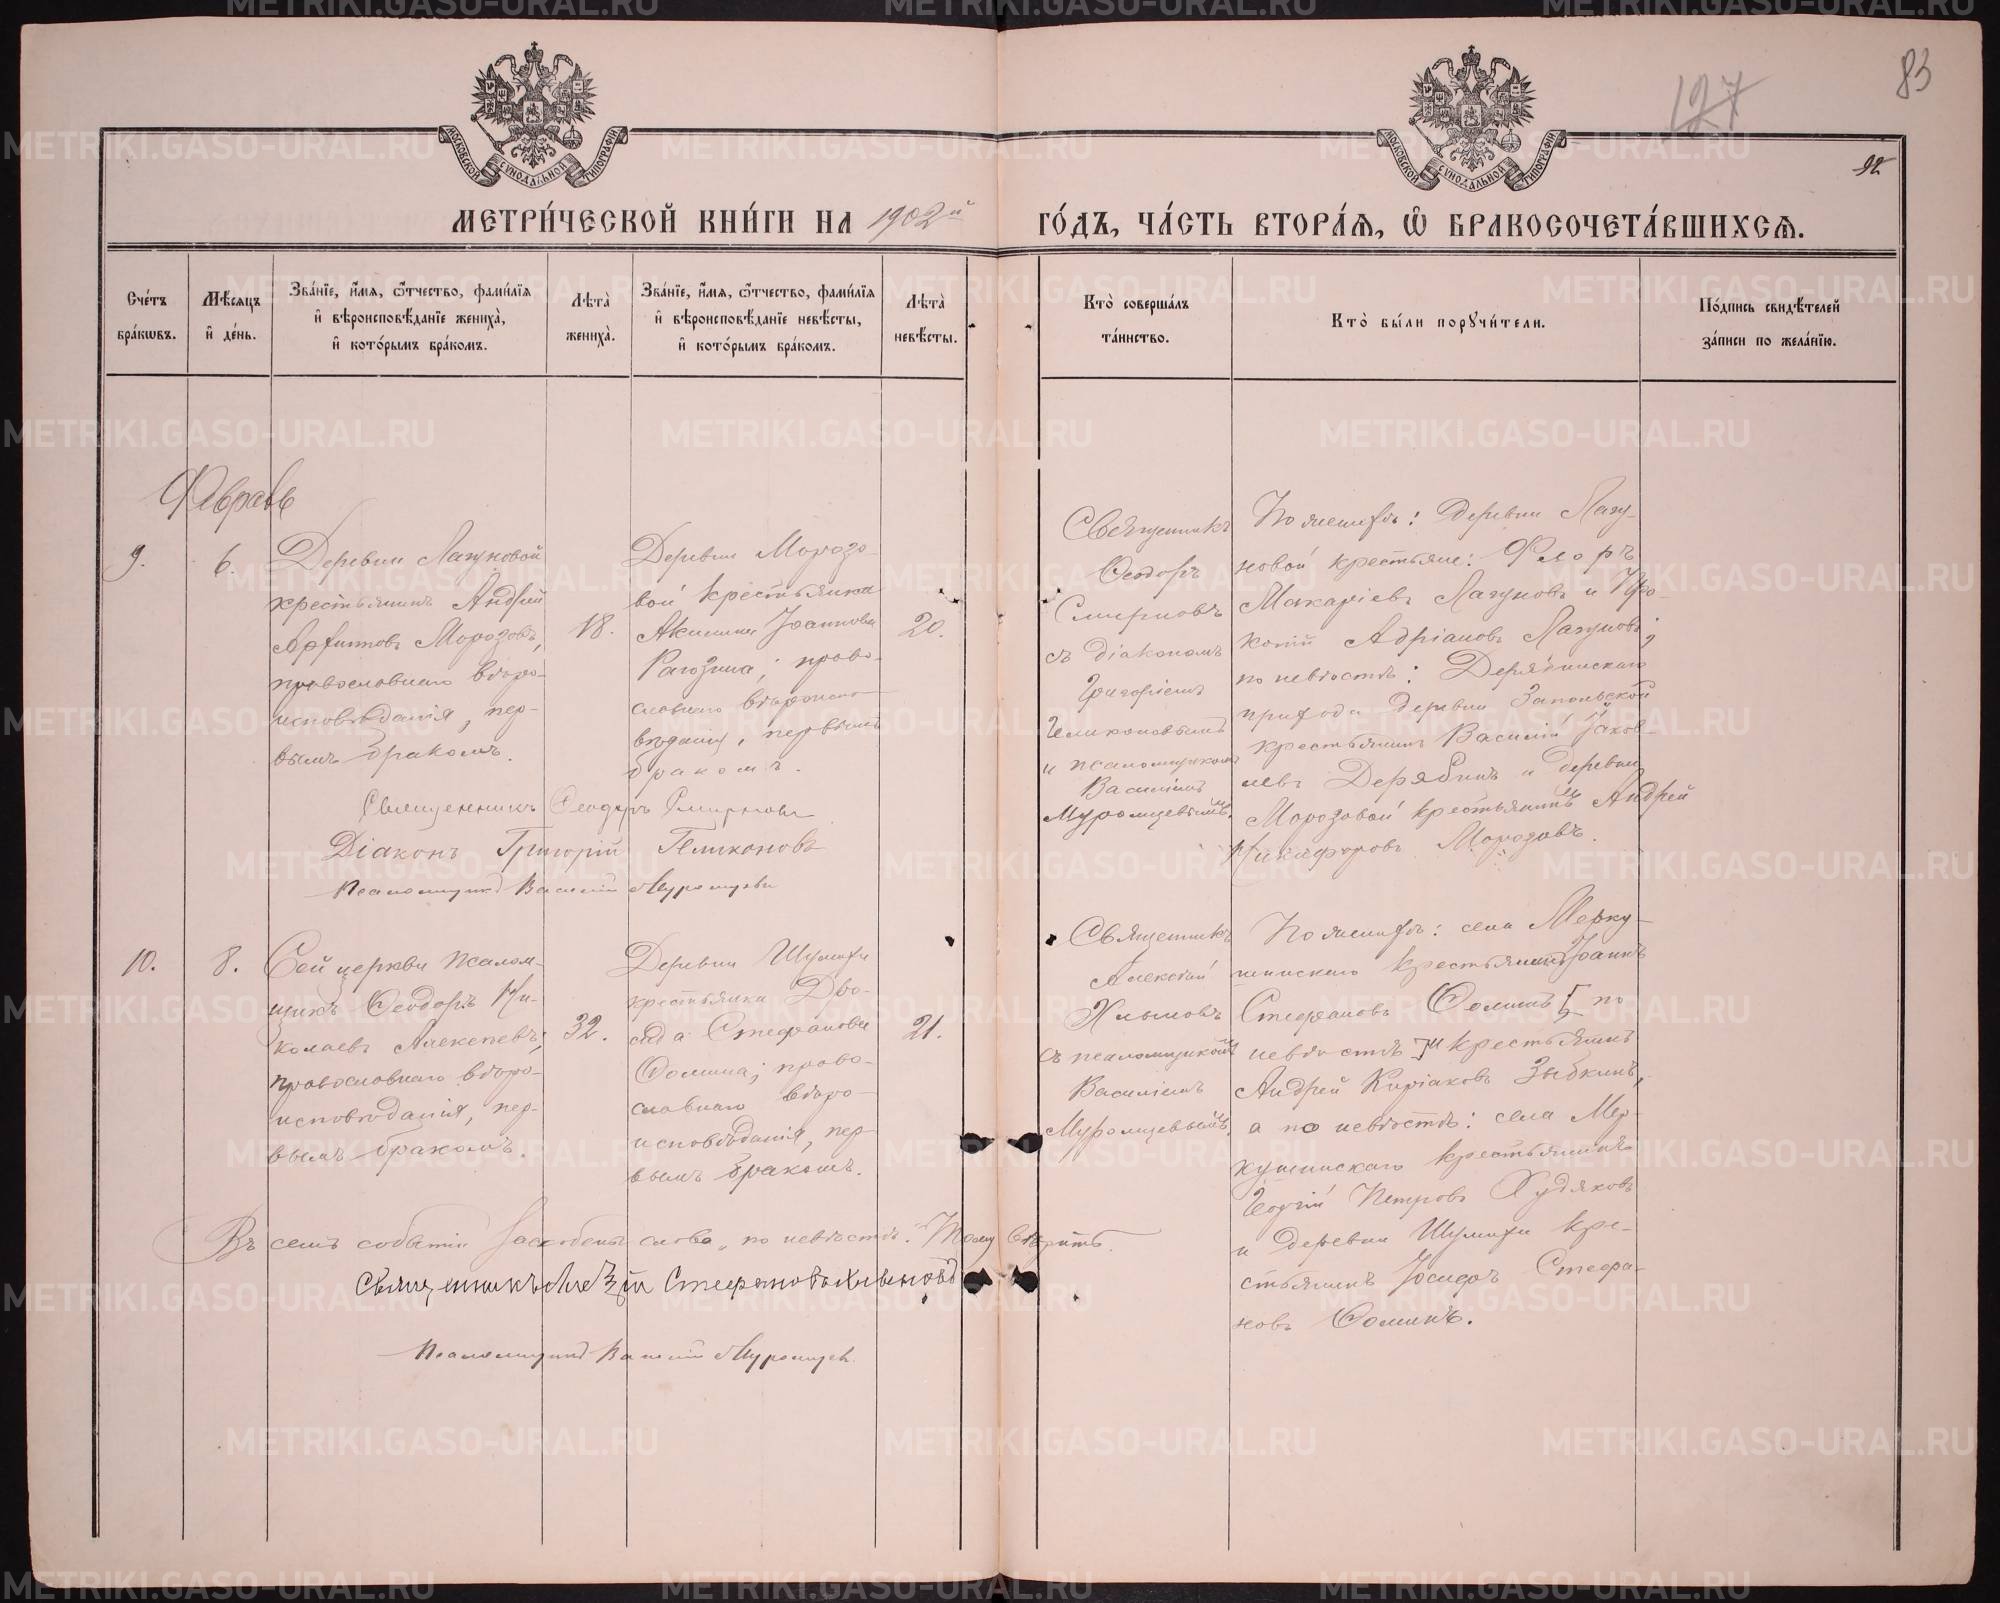 83
127
92
МОСКОВСКОЙ СѴНОДАЛЬНОЙ ТИПОГРАФІИ
МОСКОВСКОЙ СѴНОДАЛЬНОЙ ТИПОГРАФІИ
МЕТРИ́ЧЕСКОЙ КНИ́ГИ НА 1902й ГО́ДЪ, ЧА́СТЬ ВТОРА́Ѧ, Ѡ҆ БРАКОСОЧЕТА́ВШИХСѦ.
Сче́тъ бра́кѡвъ.
Мѣ́сяцъ и҆ де́нь.
Зва́нїе, и҆́мѧ, ѻ҆́тчество, фами́лїѧ
и҆ вѣроисповѣ́данїе жениха̀,
и҆ кото́рымъ бра́комъ.
Лѣта̀ жениха̀.
Зва́нїе, и҆́мѧ, ѻ҆́тчество, фами́лїѧ
и҆ вѣроисповѣ́данїе невѣ́сты,
и҆ кото́рымъ бра́комъ.
Лѣта̀ невѣ́сты.
Кто̀ соверша́лъ та́инство.
Кто̀ бы́ли порꙋчи́тели.
По́дпись свидѣ́телей за́писи по жела́нїю.
Февраль
9.
6.
Деревни Лагуновой
крестьянинъ Андрей
Морозовъ,
православнаго вѣро-
исповѣданія, пер-
вымъ бракомъ.
18.
Деревни Морозо-
вой крестьянка
Акилина Іоаннова
Рагозина; право-
славнаго вѣроиспо-
вѣданія, первымъ
бракомъ.
20.
Священникъ
Ѳеодоръ
Смирновъ
съ діакономъ
Григоріемъ
Геликоновымъ
и псаломщикомъ
Василіемъ
Муромцевымъ.
По женихѣ: деревни Лагу-
новой крестьяне: Флоръ
Макаріевъ Лагуновъ и Про-
копій Адріановъ Лагуновъ;
по невѣстѣ: Дерябинскаго
прихода деревни Запольской
крестьянинъ Василій Іаков-
левъ Дерябинъ и деревни
Морозовой крестьянинъ Андрей
Никифоровъ Морозовъ.
Священникъ Ѳеодоръ Смирновъ
Діаконъ Григорій Геликоновъ
Псаломщикъ Василій Муромцевъ
10.
8.
Сей церкви псалом-
щикъ Ѳеодоръ Ни-
колаевъ Алексѣевъ;
православнаго вѣро-
исповѣданія, пер-
вымъ бракомъ.
32.
Деревни Шумихи
крестьянка
Стефанова
Ѳомина; право-
славнаго вѣро-
исповѣданія, пер-
вымъ бракомъ.
21.
Священникъ
Алексѣй
Хлыновъ
съ псаломщикомъ
Василіемъ
Муромцевымъ.
По женихѣ: села Мерку-
шинскаго крестьянинъ Іоаннъ
Стефановъ Ѳоминъ [, по
невѣстѣ ] и крестьянинъ
Андрей Киріаковъ Зыбкинъ,
а по невѣстѣ: села Мер-
кушинскаго крестьянинъ
Георгій Петровъ Худяковъ
и деревни Шумихи кре-
стьянинъ Іосифъ Стефа-
новъ Ѳоминъ.
Въ семъ событіи заскоблены слова „по невѣстѣ". Тому вѣрить.
Священникъ Алексѣй Стефановъ Хлыновъ
Псаломщикъ Василій Муромцевъ.
METRIKI.GASO-URAL.RU